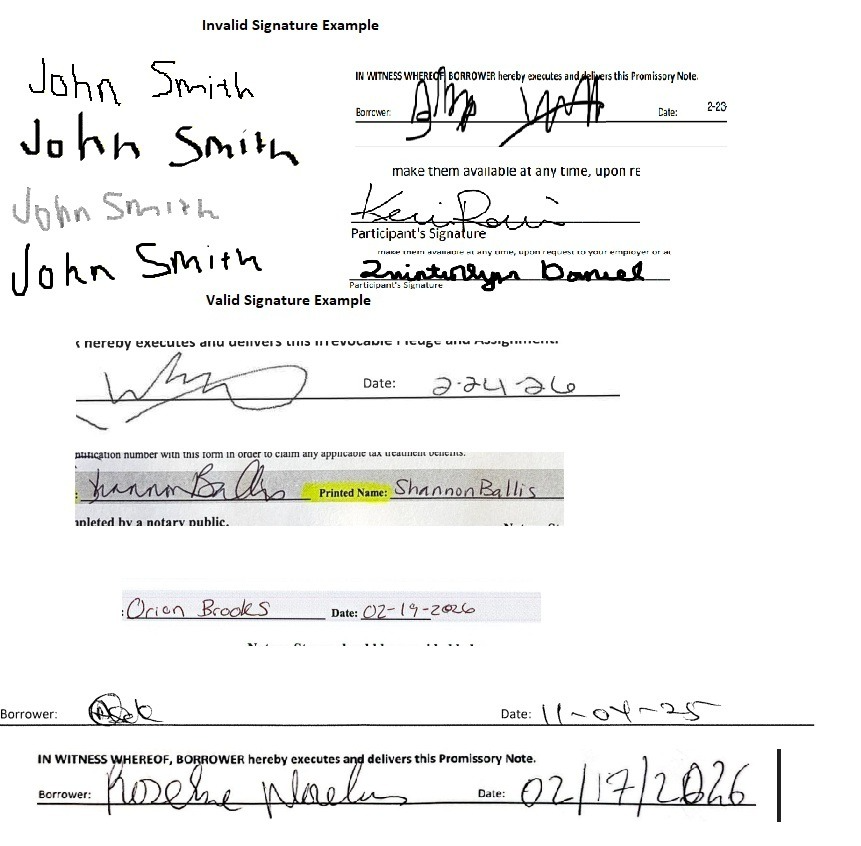 Invalid Signature Example
John Smith
John Smith
John Smith
John Smith
IN WITNESS WHEREOF, BORROWER hereby executes and delivers this Promissory Note.
Borrower: Date: 2-23
make them available at any time, upon re
Participant's Signature
make them available at any time, upon request to your employer or a
Daniel
Participant's Signature
Valid Signature Example
hereby executes and delivers this Irrevocable Pledge and Assignment.
Date: 2-24-26
ntification number with this form in order to claim any applicable tax treatment benefits.
: Shannon Ballis Printed Name: Shannon Ballis
npleted by a notary public.
: Orion Brooks Date: 02-19-2026
Borrower: Date: 11-04-25
IN WITNESS WHEREOF, BORROWER hereby executes and delivers this Promissory Note.
Borrower: Date: 02/17/2026